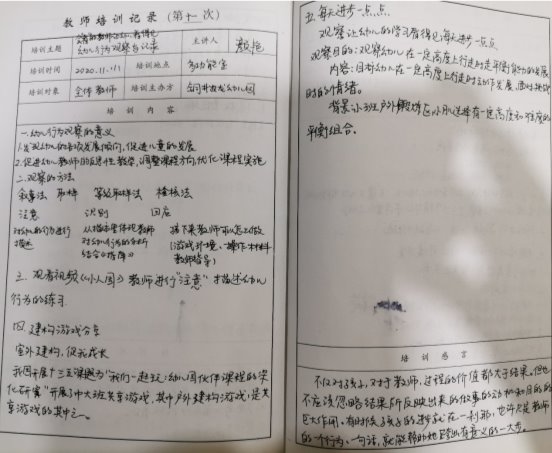 教师培训记录（第十一次）
培训主题
幼儿行为观察与记录
主讲人
培训时间
2020.11.11
培训地点
多功能室
培训对象
全体教师
培训主办方
幼儿园
培训内容
一、幼儿行为观察的意义
1.发现幼儿的发展倾向，促进儿童的发展
2.促进幼儿教师的反思性教学，调整课程方向，优化课程实施
二、观察的方法
叙事法 取样 等级取样法 检核法
注意 识别 回应
对幼儿的行为进行 从描述里体现教师 接下来教师可以怎么做
描述 对幼儿行为的分析 （游戏环境、操作材料
结合《指南》 教师指导）
三、观看视频《小人国》教师进行“注意”描述幼儿
行为的练习
四、建构游戏分享
室外建构，促我成长
我园开展十三五课题为“我们一起玩：幼儿园伙伴课程的深
化研究”开展了中大班共享游戏，其中户外建构游戏，是共
享游戏的其中之一。
五、每天进步一点点
观察让幼儿的学习看得见每天进步一点点
观察目的：观察幼儿在一定高度上行走时平衡能力的发展
内容：目标幼儿在一定高度上行走时动作发展，面对挑战
时的情绪。
背景：小班户外 区小朋友选择有一定高度和难度的
平衡组合。
培训感言
不仅对孩子，对于教师，过程的价值都大于结果。但也
不应该忽略结果所反映出来的做事的动机和目的的
巨大作用。有时候孩子的进步就在一刹那，也许只是教师
的一个行为、一句话，就能帮助她跨出有意义的一大步。